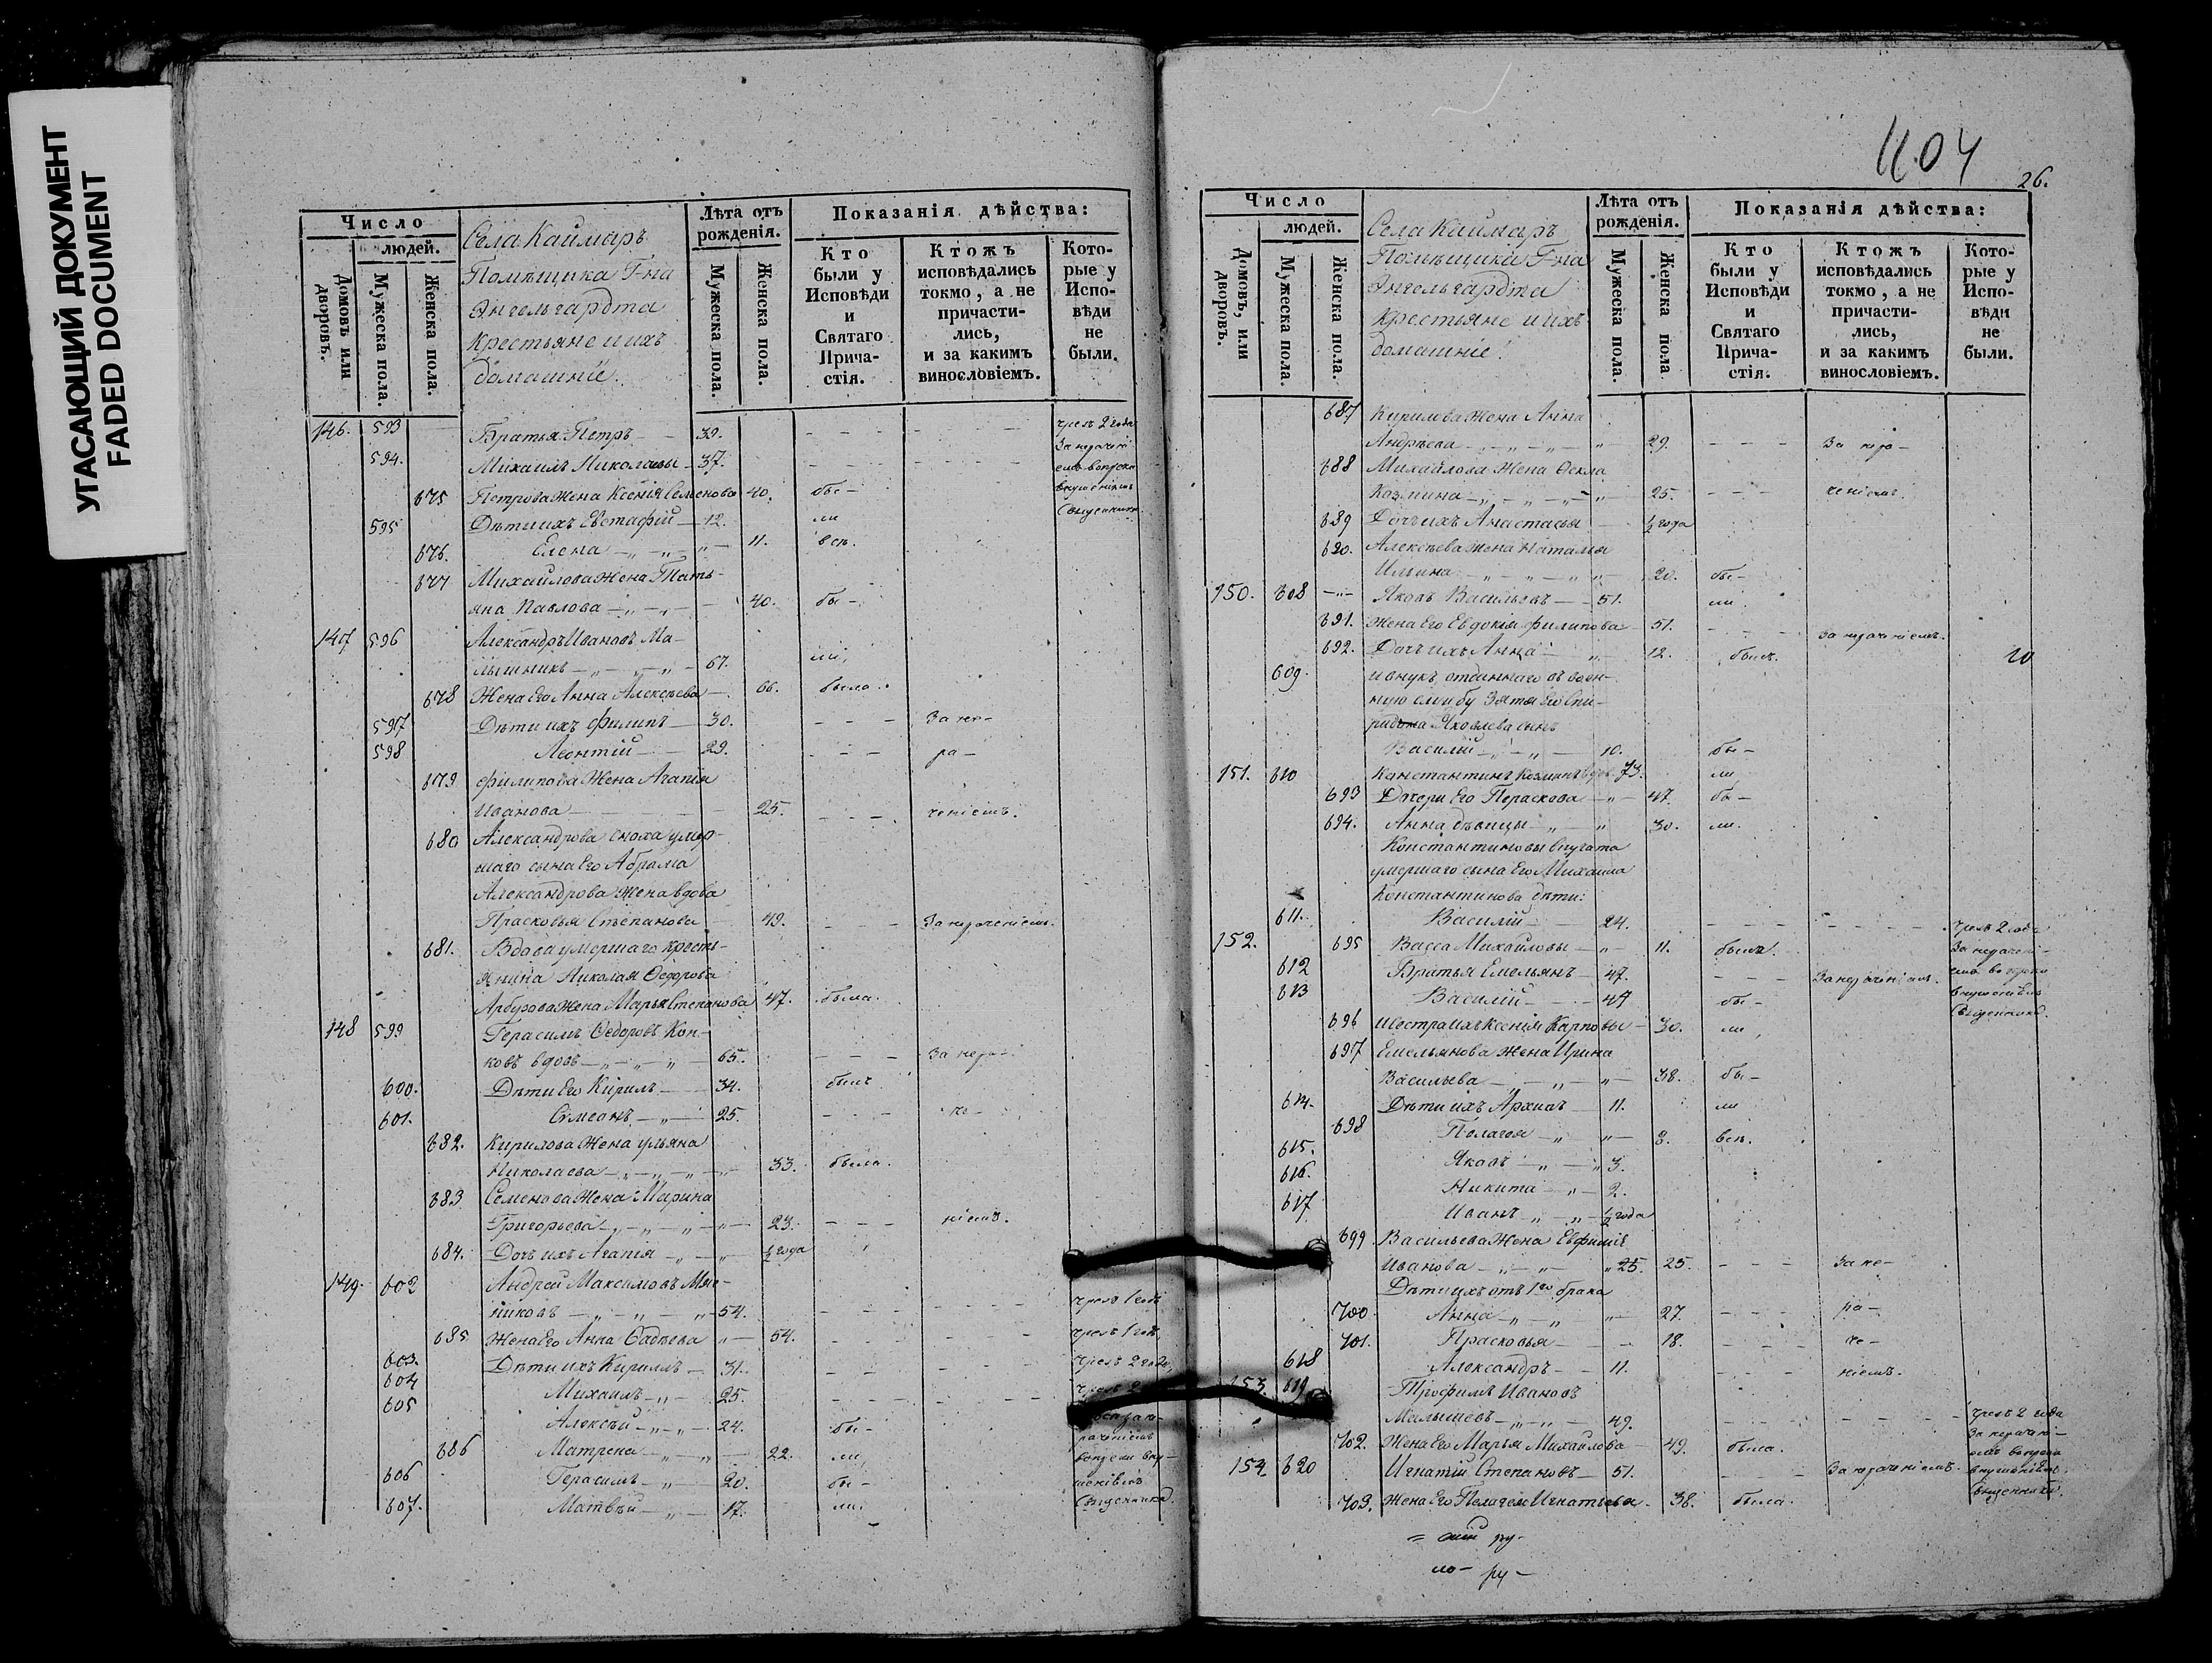 УГАСАЮЩИЙ ДОКУМЕНТ
FADED DOCUMENT
Число
людей.
Домовъ или дворовъ.
Мужеска пола.
Женска пола.
Села Каймаръ
Помѣщика Г-на
Энгельгардта
Крестьяне и ихъ
домашніе.
Лѣта отъ рожденія.
Мужеска пола.
Женска пола.
Показанія дѣйства:
Кто были у Исповѣди и Святаго Прича-стія.
Ктожъ исповѣдались токмо, а не причасти-лись, и за какимъ винословіемъ.
Кото-рые у Испо-вѣди не были.
146. 593 Братья: Петръ 39. чрезъ 2 года
594. Михаилъ Николаевы 37. За нерачені-
675 Петрова жена Ксенія Семенова 40. бы-
595 Дѣти ихъ Евстафій 12. ли
676. Елена 11. всѣ.
677 Михайлова жена Тать-
яна Павлова 40. бы-
147 596 Александръ Ивановъ Ма-
67. ли,
678 Жена Его Анна Алексѣева 66. была.
597 Дѣти ихъ Филипъ 30. За не-
598 Леонтій 29. ра-
679 Филипова жена Агапія
Иванова 25. ченіемъ.
680 Александрова сноха умер-
шаго сына Его Абрама
Александрова жена вдова
Прасковья Степанова 49. За нераченіемъ.
681. Вдова умершаго кресть-
янина Николая Ѳедорова
Арбузова жена Марья Степанова 47. была.
148 599 Герасимъ Ѳедоровъ Кон-
ковъ вдовъ 65. За нера-
600. Дѣти Его Кирилъ 34. былъ
601. Симеонъ 25. че-
682. Кирилова жена Ульяна
Николаева 33. была.
683 Семенова жена Марина
Григорьева 23. ніемъ.
684. Дочь ихъ Агапія ½ года
149. 602 Андрей Максимовъ
54. чрезъ 1 годъ
685 Жена Его Анна Фадѣева 54. чрезъ 1 годъ
603. Дѣти ихъ Кириллъ 31. чрезъ 2 года
604 Михаилъ 25.
605 Алексѣй 24. бы-
686 Матрена 22. ли,
606 Герасимъ 20. бы-
607. Матвѣй 17. ли,
1104
26.
Число
людей.
Домовъ, или дворовъ.
Мужеска пола.
Женска пола.
Села Каймаръ
Помѣщика Г-на
Энгельгардта
Крестьяне и ихъ
домашніе.
Лѣта отъ рожденія.
Мужеска пола.
Женска пола
Показанія дѣйства:
Кто были у Исповѣди и Святаго Прича-стія.
Ктожъ исповѣдались токмо, а не причасти-лись, и за какимъ винословіемъ.
Кото-рые у Испо-вѣди не были.
687 Кирилова жена Анна
Андрѣева 29. За нера-
688 Михайлова жена Ѳекла
Козмина 25. ченіемъ.
689 Дочь ихъ Анастасья ½ года
690. Алексѣева жена Наталья
Ильина 20. бы-
150. 608 Яковъ Васильевъ 51. ли.
691. Жена Его Евдокія Филипова 51. За нераченіемъ.
692. Дочь ихъ Анна 12. была.
609. и внукъ отданнаго въ воен-
ную службу зятя Его Спи-
ридона Яковлева сынъ
Василій 10. бы-
151. 610 Константинъ Козминъ вдов. 73. ли,
693 Дочери Его Параскова 47. бы-
694. Анна дѣвицы 30. ли.
Константиновы внучата
умершаго сына Его Михаила
Константинова дѣти:
611. Василій 24. чрезъ 2 года
695 Васса Михайловы 11. была. За нерачені-
152. 612 Братья Емельянъ 47. За нераченіемъ.
613 Василій 44 бы-
696 и сестра ихъ Ксенія Карповы 30. ли,
697 Емельянова жена Ирина
Васильева 38. бы-
614. Дѣти ихъ Архипъ 11. ли
698 Пелагея 8. всѣ.
615. Яковъ 3.
616. Никита 2.
617 Иванъ ½ года
699 Васильева жена Евфимія
Иванова 25. 25. За не-
Дѣти ихъ отъ 1го брака
700 Анна 27. ра-
701. Прасковья 18. че-
618 Александръ 11. ніемъ.
153. 619 Трофимъ Ивановъ
Малышевъ 49. чрезъ 2 года
702. Жена Его Марья Михайлова 49. была.
154 620 Игнатій Степановъ 51. За нераченіемъ
703. Жена Его Пелагея Игнатьева 38. была.